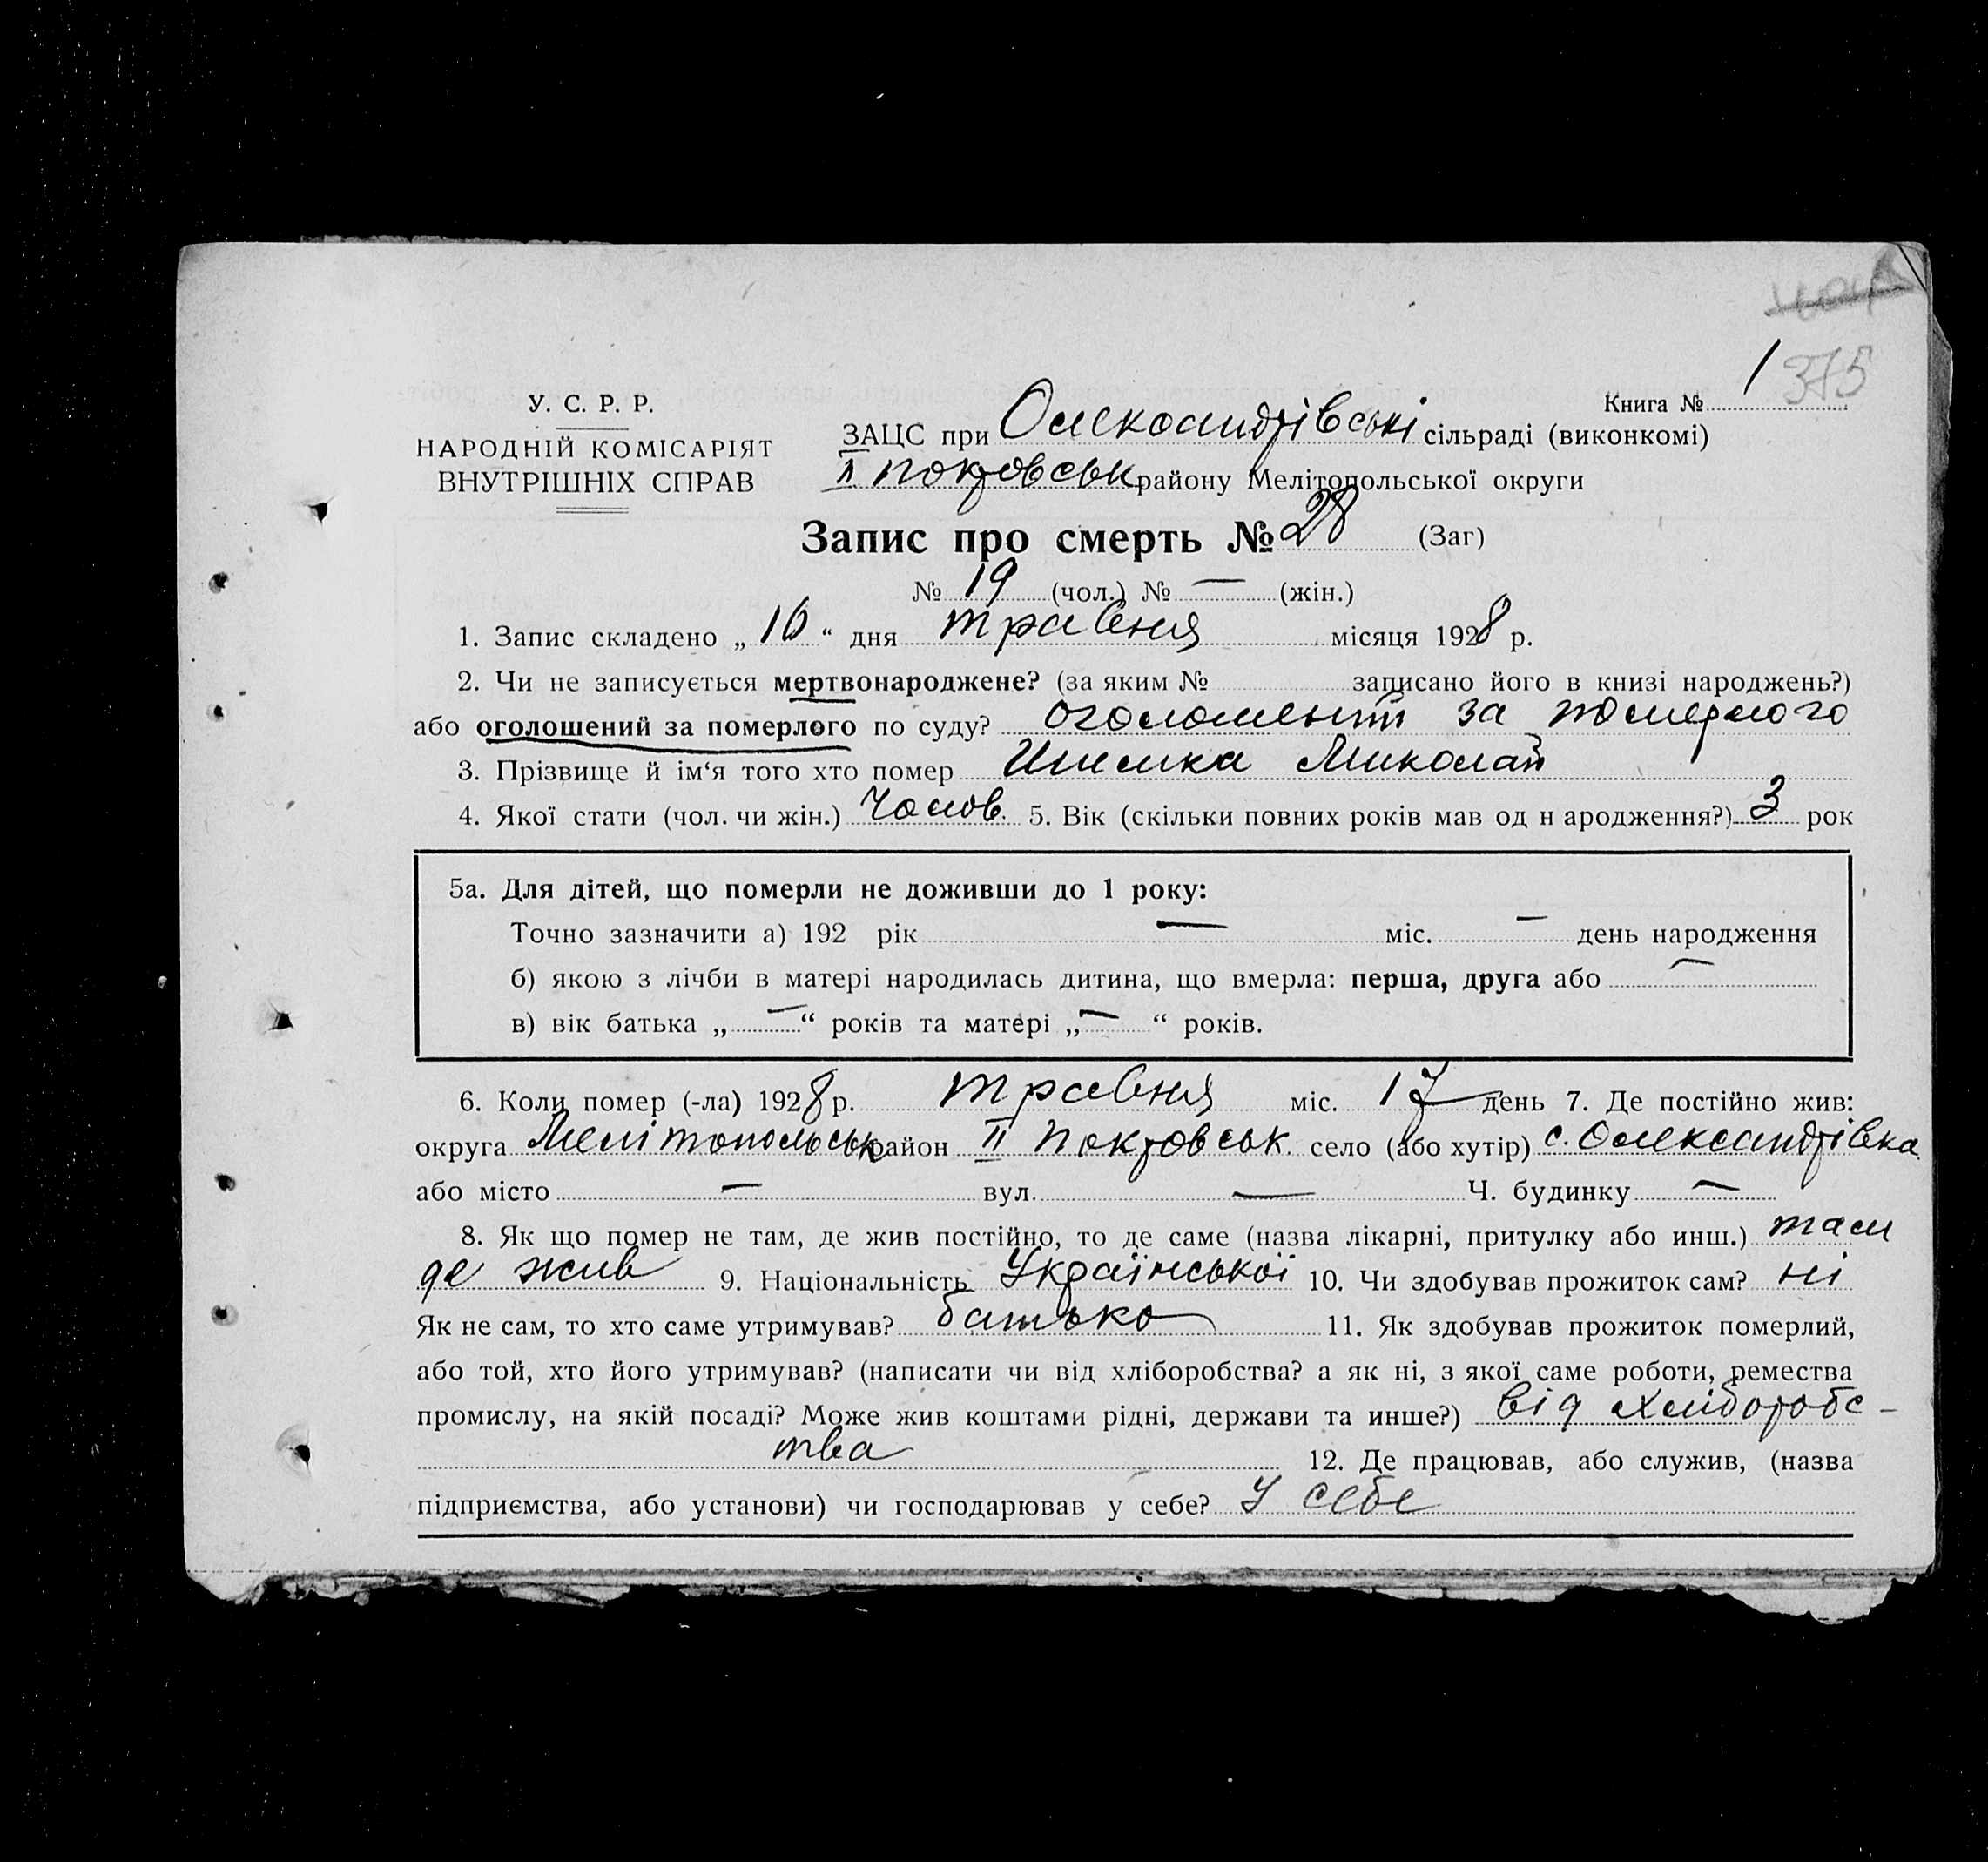 1 375
Книга №
У. С. Р. Р.
НАРОДНІЙ КОМІСАРІЯТ
ВНУТРІШНІХ СПРАВ
ЗАЦС при Олександрівські сільраді (виконкомі)
ІІ Покровськ району Мелітопольської округи
Запис про смерть № 28 (Заг)
№ 19 (чол.) № — (жін.)
1. Запис складено „ “ дня травня місяця 1928 р.
2. Чи не записується мертвонароджене? (за яким № записано його в книзі народжень?)
або оголошений за померлого по суду? за
3. Прізвище й ім‘я того хто помер Миколай
4. Якої стати (чол. чи жін.) Чолов. 5. Вік (скільки повних років мав од н ародження?) 3 рок
5а. Для дітей, що померли не доживши до 1 року:
Точно зазначити а) 192 рік — міс. — день народження
б) якою з лічби в матері народилась дитина, що вмерла: перша, друга або —
в) вік батька „ — “ років та матері „ — “ років.
6. Коли помер (-ла) 1928 р. травня міс. 17 день 7. Де постійно жив:
округа Мелітопольськ район ІІ Покровськ. село (або хутір) с. Олександрівка
або місто — вул. — Ч. будинку —
8. Як що помер не там, де жив постійно, то де саме (назва лікарні, притулку або инш.) там
де жив 9. Національність Української 10. Чи здобував прожиток сам? ні
Як не сам, то хто саме утримував? батько 11. Як здобував прожиток померлий,
або той, хто його утримував? (написати чи від хліборобства? а як ні, з якої саме роботи, ремества
промислу, на якій посаді? Може жив коштами рідні, держави та инше?) від хліборобс-
тва 12. Де працював, або служив, (назва
підприємства, або установи) чи господарював у себе? У себе